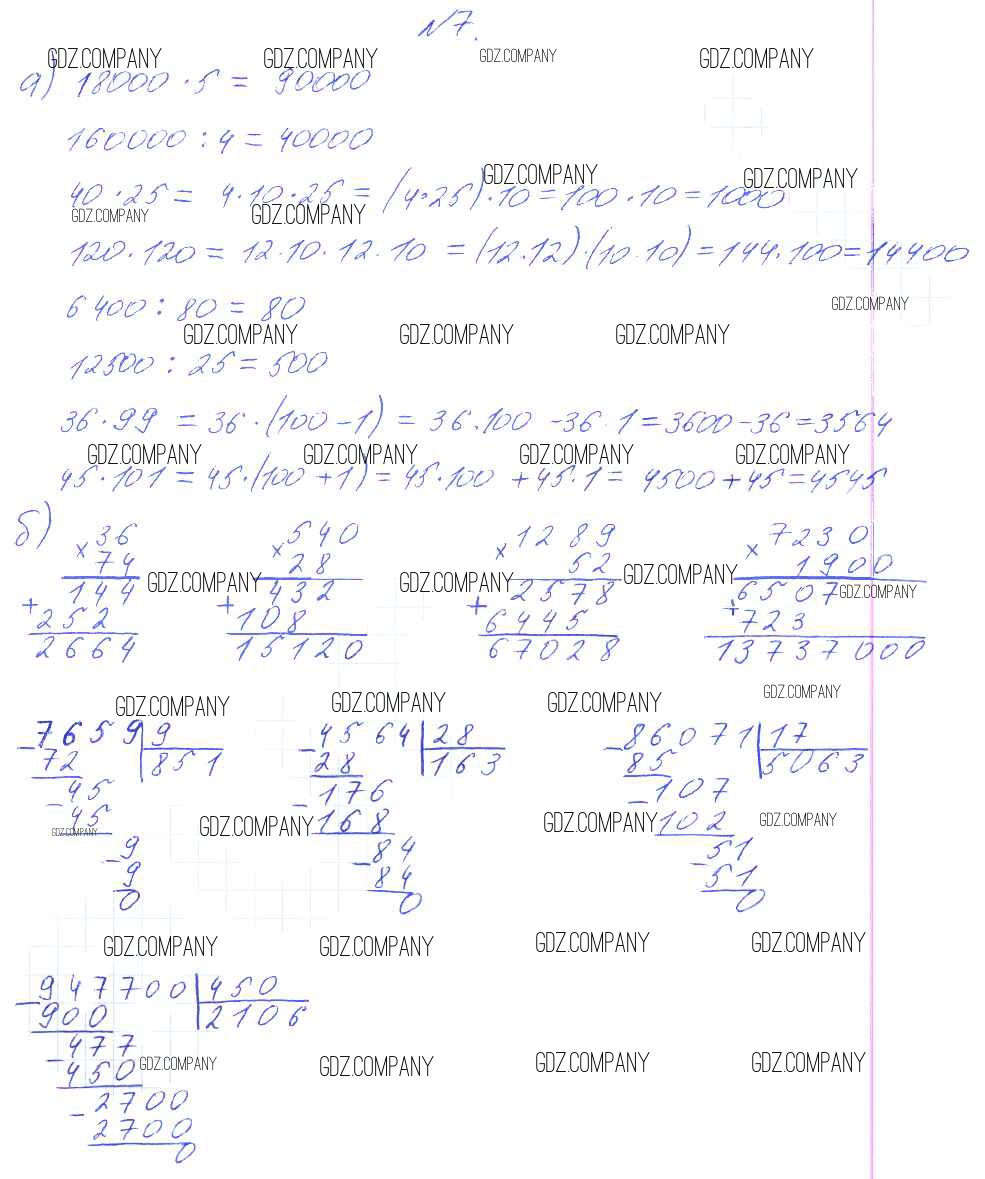 N7.
GDZ.COMPANY GDZ.COMPANY GDZ.COMPANY GDZ.COMPANY
а) 18000 · 5 = 90000
160000 : 4 = 40000
GDZ.COMPANY GDZ.COMPANY
40 · 25 = 4 · 10 · 25 = (4 · 25) · 10 = 100 · 10 = 1000
GDZ.COMPANY GDZ.COMPANY
120 · 120 = 12 · 10 · 12 · 10 = (12 · 12) · (10 · 10) = 144 · 100 = 14400
6400 : 80 = 80
GDZ.COMPANY
GDZ.COMPANY GDZ.COMPANY GDZ.COMPANY
12500 : 25 = 500
36 · 99 = 36 · (100 - 1) = 36 · 100 - 36 · 1 = 3600 - 36 = 3564
GDZ.COMPANY GDZ.COMPANY GDZ.COMPANY GDZ.COMPANY
45 · 101 = 45 · (100 + 1) = 45 · 100 + 45 · 1 = 4500 + 45 = 4545
б)
36 540 1289 7230
× 74 × 28 × 52 × 1900
GDZ.COMPANY GDZ.COMPANY GDZ.COMPANY GDZ.COMPANY
144 432 2578 6507
+ 252 + 108 + 6445 + 723
2664 15120 67028 13737000
GDZ.COMPANY GDZ.COMPANY GDZ.COMPANY GDZ.COMPANY
- 7659 | 9 - 4564 | 28 - 86071 | 17
72 | 851 28 | 163 85 | 5063
- 45 - 176 - 107
45 168 102
GDZ.COMPANY GDZ.COMPANY GDZ.COMPANY GDZ.COMPANY
- 9 - 84 - 51
9 84 51
0 0 0
GDZ.COMPANY GDZ.COMPANY GDZ.COMPANY GDZ.COMPANY
- 947700 | 450
900 | 2106
- 477
450
GDZ.COMPANY GDZ.COMPANY GDZ.COMPANY GDZ.COMPANY
- 2700
2700
0